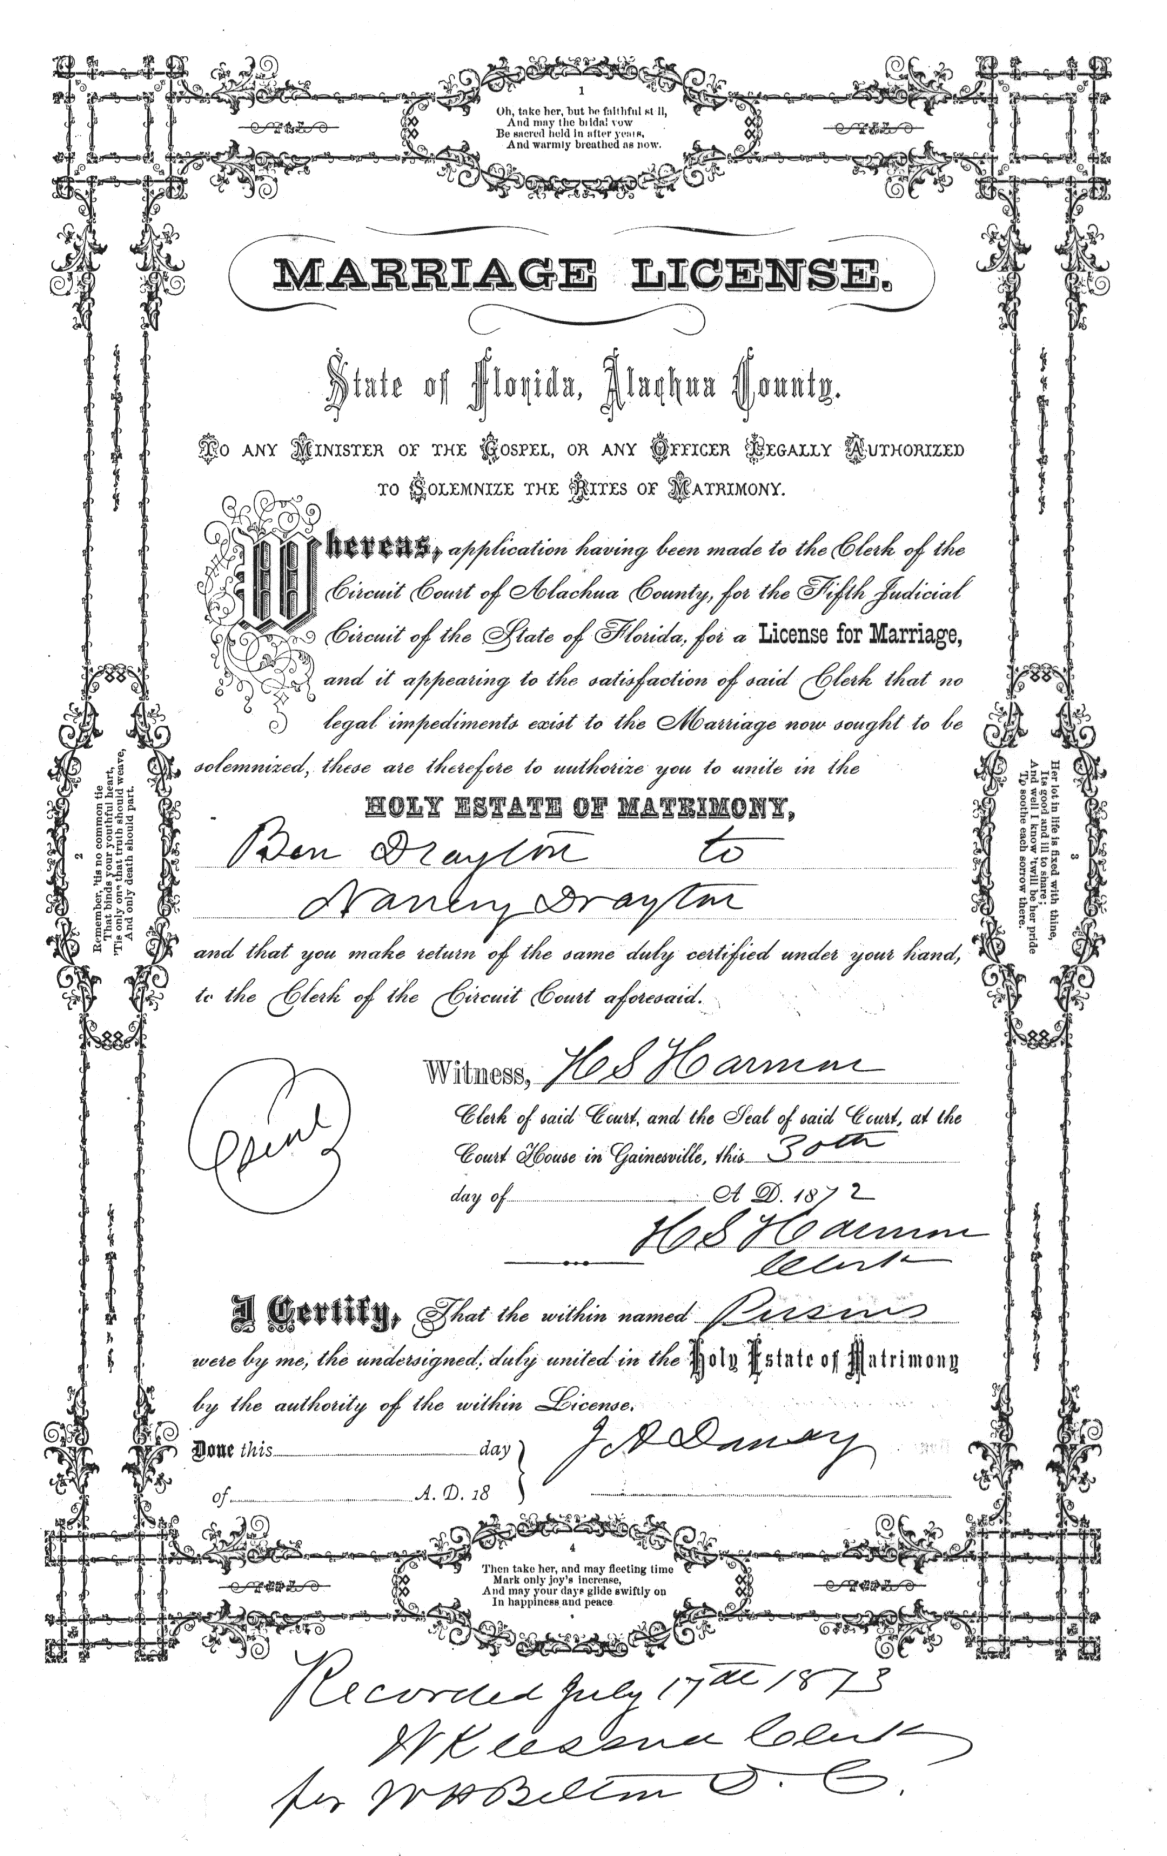 1
Oh, take her, but be faithful still,
And may the bridal vow
Be sacred held in after years,
And warmly breathed as now.
MARRIAGE LICENSE.
State of Florida, Alachua County.
TO ANY MINISTER OF THE GOSPEL, OR ANY OFFICER LEGALLY AUTHORIZED
TO SOLEMNIZE THE RITES OF MATRIMONY.
Whereas, application having been made to the Clerk of the
Circuit Court of Alachua County, for the Fifth Judicial
Circuit of the State of Florida, for a License for Marriage,
and it appearing to the satisfaction of said Clerk that no
legal impediments exist to the Marriage now sought to be
solemnized, these are therefore to authorize you to unite in the
HOLY ESTATE OF MATRIMONY,
Ben Drayton to
Nancy Drayton
and that you make return of the same duly certified under your hand,
to the Clerk of the Circuit Court aforesaid.
2
Remember, 'tis no common tie
That binds your youthful heart,
'Tis only one that truth should weave,
And only death should part.
3
Her lot in life is fixed with thine,
Its good and ill to share;
And well I know 'twill be her pride
To soothe each sorrow there.
Witness, H S Harmon
Clerk of said Court, and the Seal of said Court, at the
Court House in Gainesville, this 30th
day of A. D. 1872
H S Harmon
Clerk
I Certify, That the within named Persons
were by me, the undersigned, duly united in the Holy Estate of Matrimony
by the authority of the within License.
Done this day
of A. D. 18
J A
4
Then take her, and may fleeting time
Mark only joy's increase,
And may your days glide swiftly on
In happiness and peace
Recorded July 17th 1873
Clerk
per W H Belton D. C.